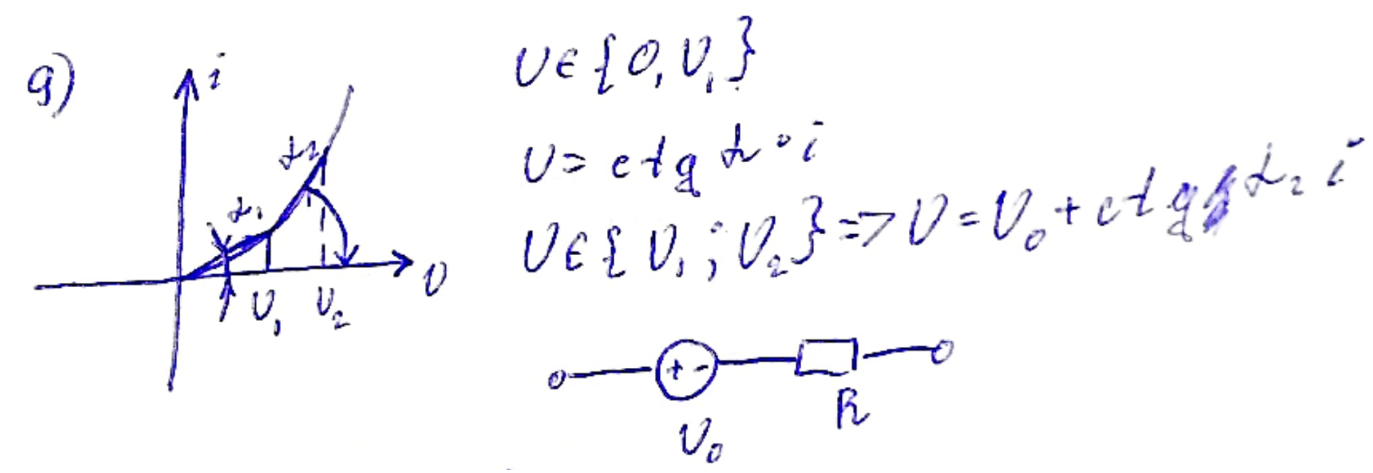 а)
i
α₂
α₁
U₁ U₂
U
U∈{0, U₁}
U = ctg α · i
U∈{U₁; U₂} => U = U₀ + ctg α₂ i
+ -
U₀
R